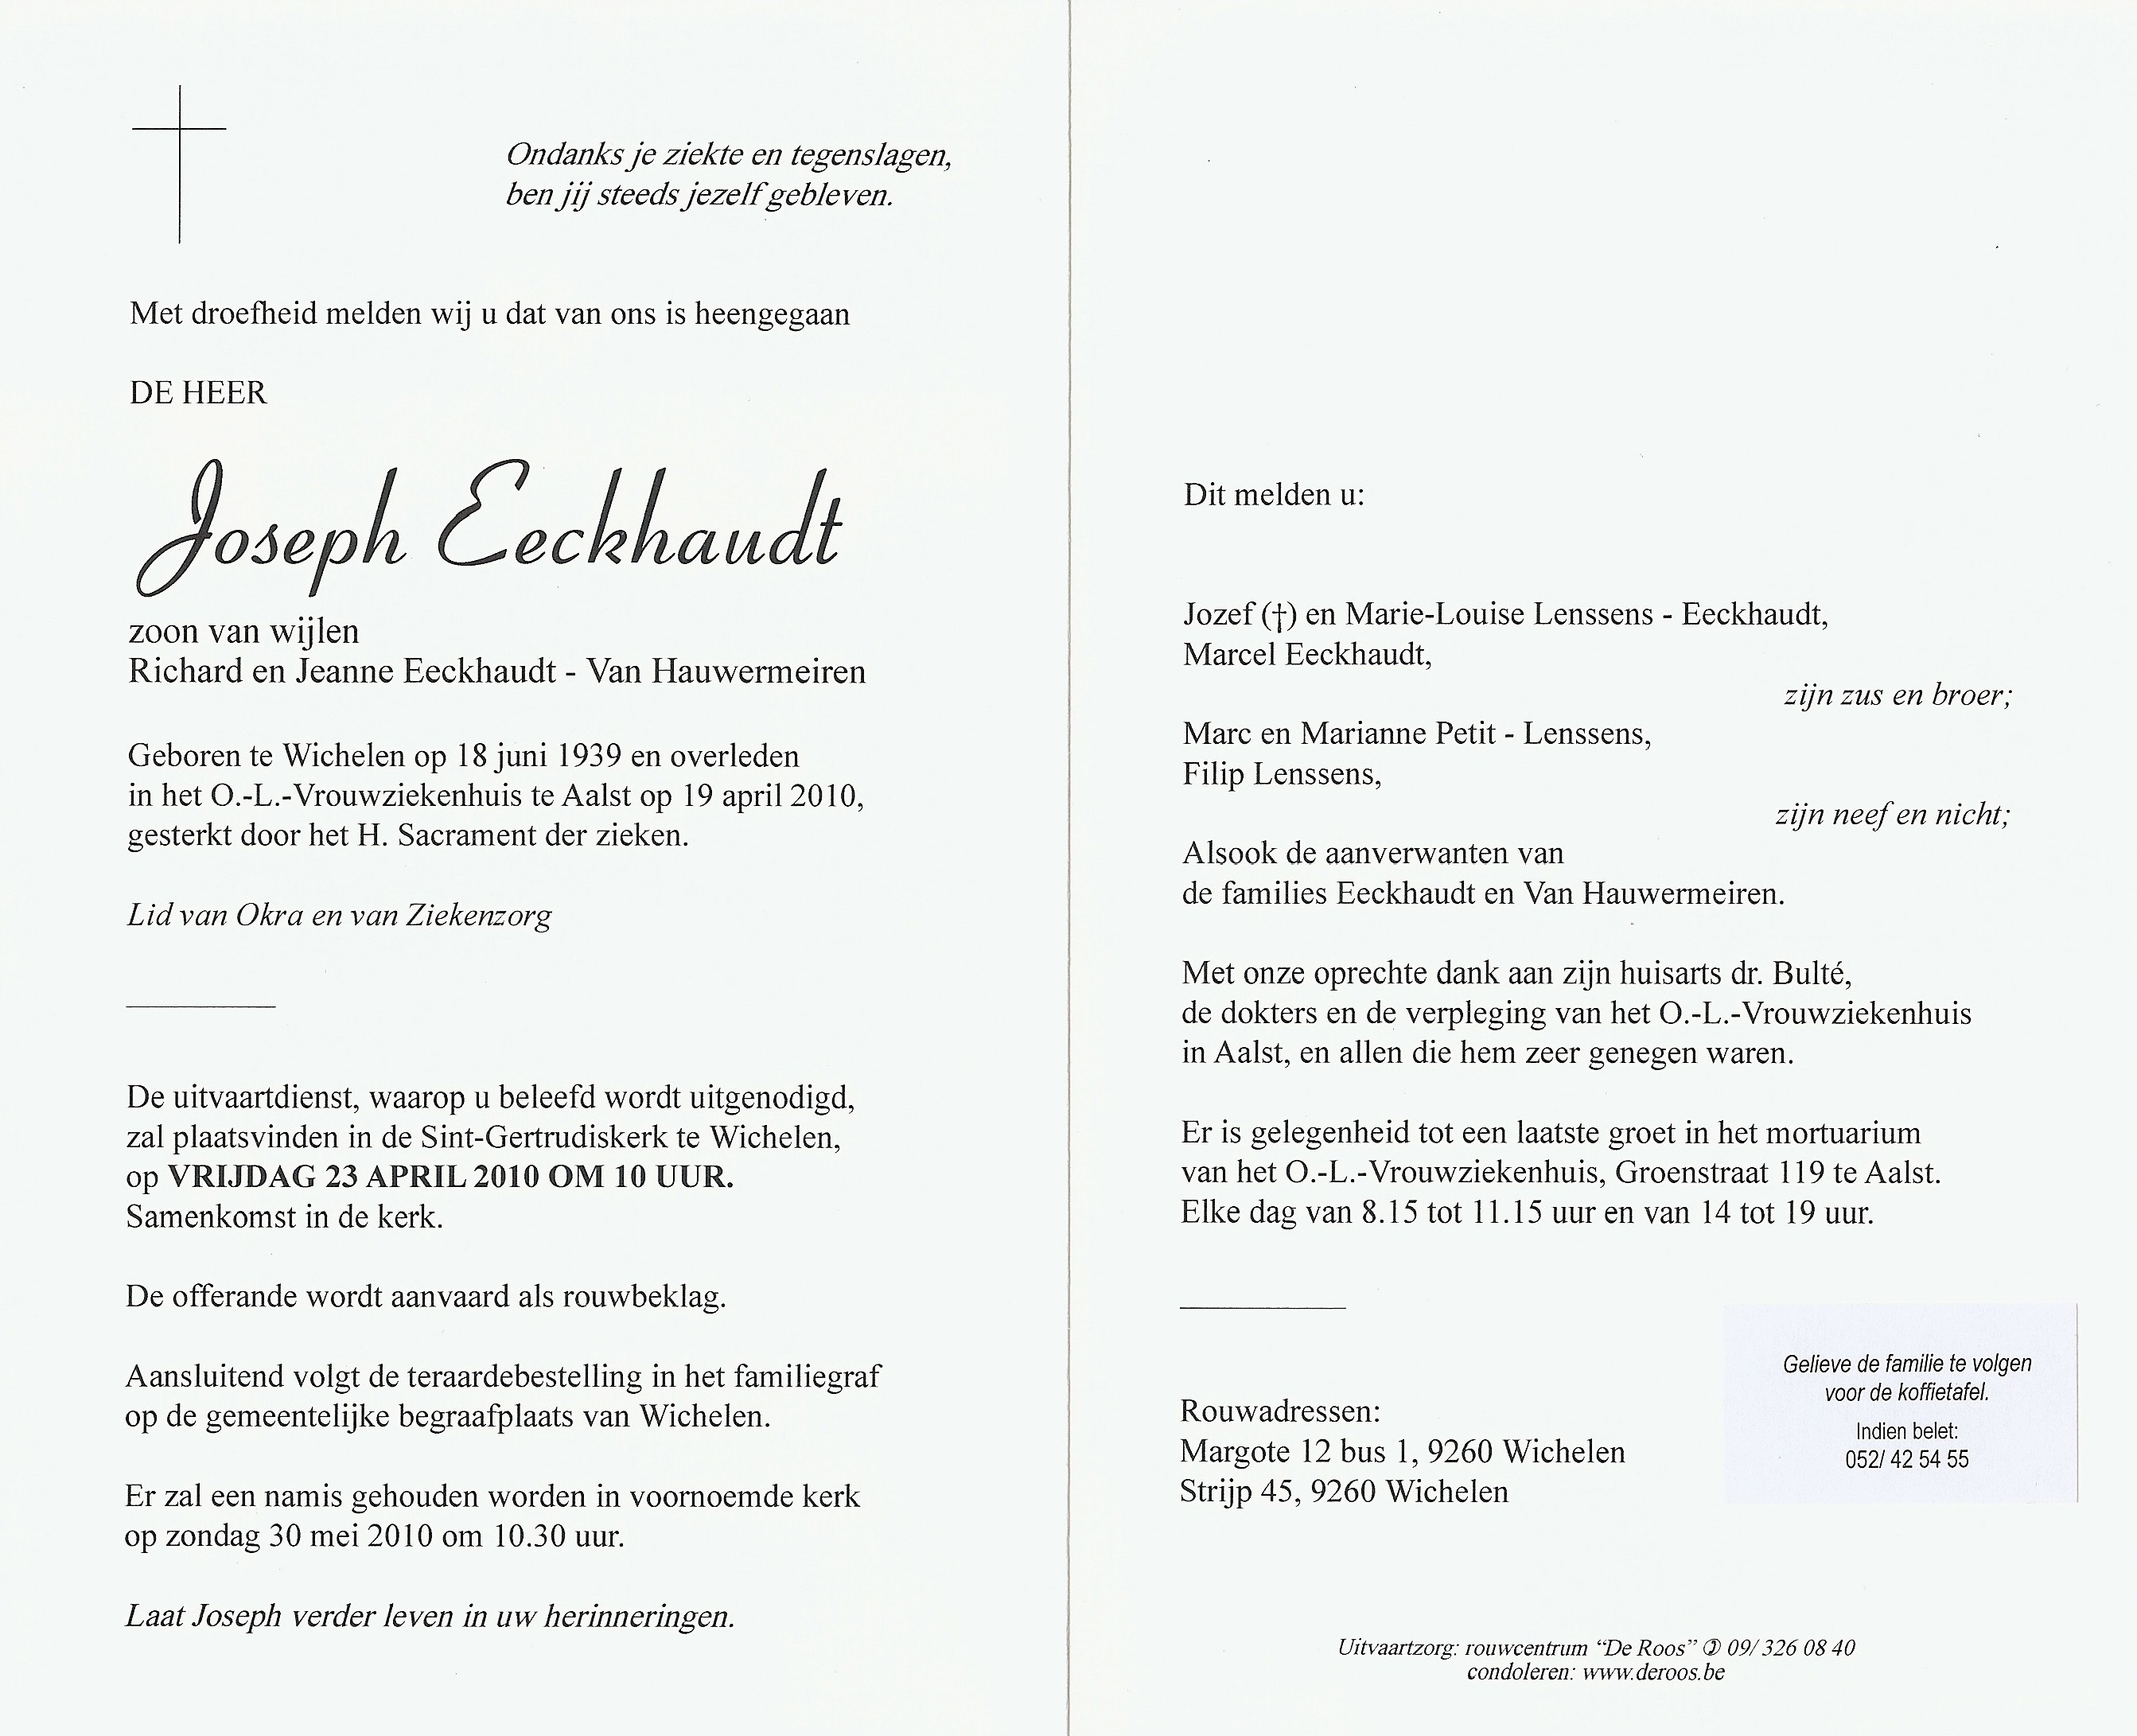 Ondanks je ziekte en tegenslagen,
ben jij steeds jezelf gebleven.
Met droefheid melden wij u dat van ons is heengegaan
DE HEER
Joseph Eeckhaudt
zoon van wijlen
Richard en Jeanne Eeckhaudt - Van Hauwermeiren
Geboren te Wichelen op 18 juni 1939 en overleden
in het O.-L.-Vrouwziekenhuis te Aalst op 19 april 2010,
gesterkt door het H. Sacrament der zieken.
Lid van Okra en van Ziekenzorg
De uitvaartdienst, waarop u beleefd wordt uitgenodigd,
zal plaatsvinden in de Sint-Gertrudiskerk te Wichelen,
op VRIJDAG 23 APRIL 2010 OM 10 UUR.
Samenkomst in de kerk.
De offerande wordt aanvaard als rouwbeklag.
Aansluitend volgt de teraardebestelling in het familiegraf
op de gemeentelijke begraafplaats van Wichelen.
Er zal een namis gehouden worden in voornoemde kerk
op zondag 30 mei 2010 om 10.30 uur.
Laat Joseph verder leven in uw herinneringen.
Dit melden u:
Jozef (†) en Marie-Louise Lenssens - Eeckhaudt,
Marcel Eeckhaudt,
zijn zus en broer;
Marc en Marianne Petit - Lenssens,
Filip Lenssens,
zijn neef en nicht;
Alsook de aanverwanten van
de families Eeckhaudt en Van Hauwermeiren.
Met onze oprechte dank aan zijn huisarts dr. Bulté,
de dokters en de verpleging van het O.-L.-Vrouwziekenhuis
in Aalst, en allen die hem zeer genegen waren.
Er is gelegenheid tot een laatste groet in het mortuarium
van het O.-L.-Vrouwziekenhuis, Groenstraat 119 te Aalst.
Elke dag van 8.15 tot 11.15 uur en van 14 tot 19 uur.
Rouwadressen:
Margote 12 bus 1, 9260 Wichelen
Strijp 45, 9260 Wichelen
Gelieve de familie te volgen
voor de koffietafel.
Indien belet:
052/ 42 54 55
Uitvaartzorg: rouwcentrum “De Roos” ✆ 09/ 326 08 40
condoleren: www.deroos.be